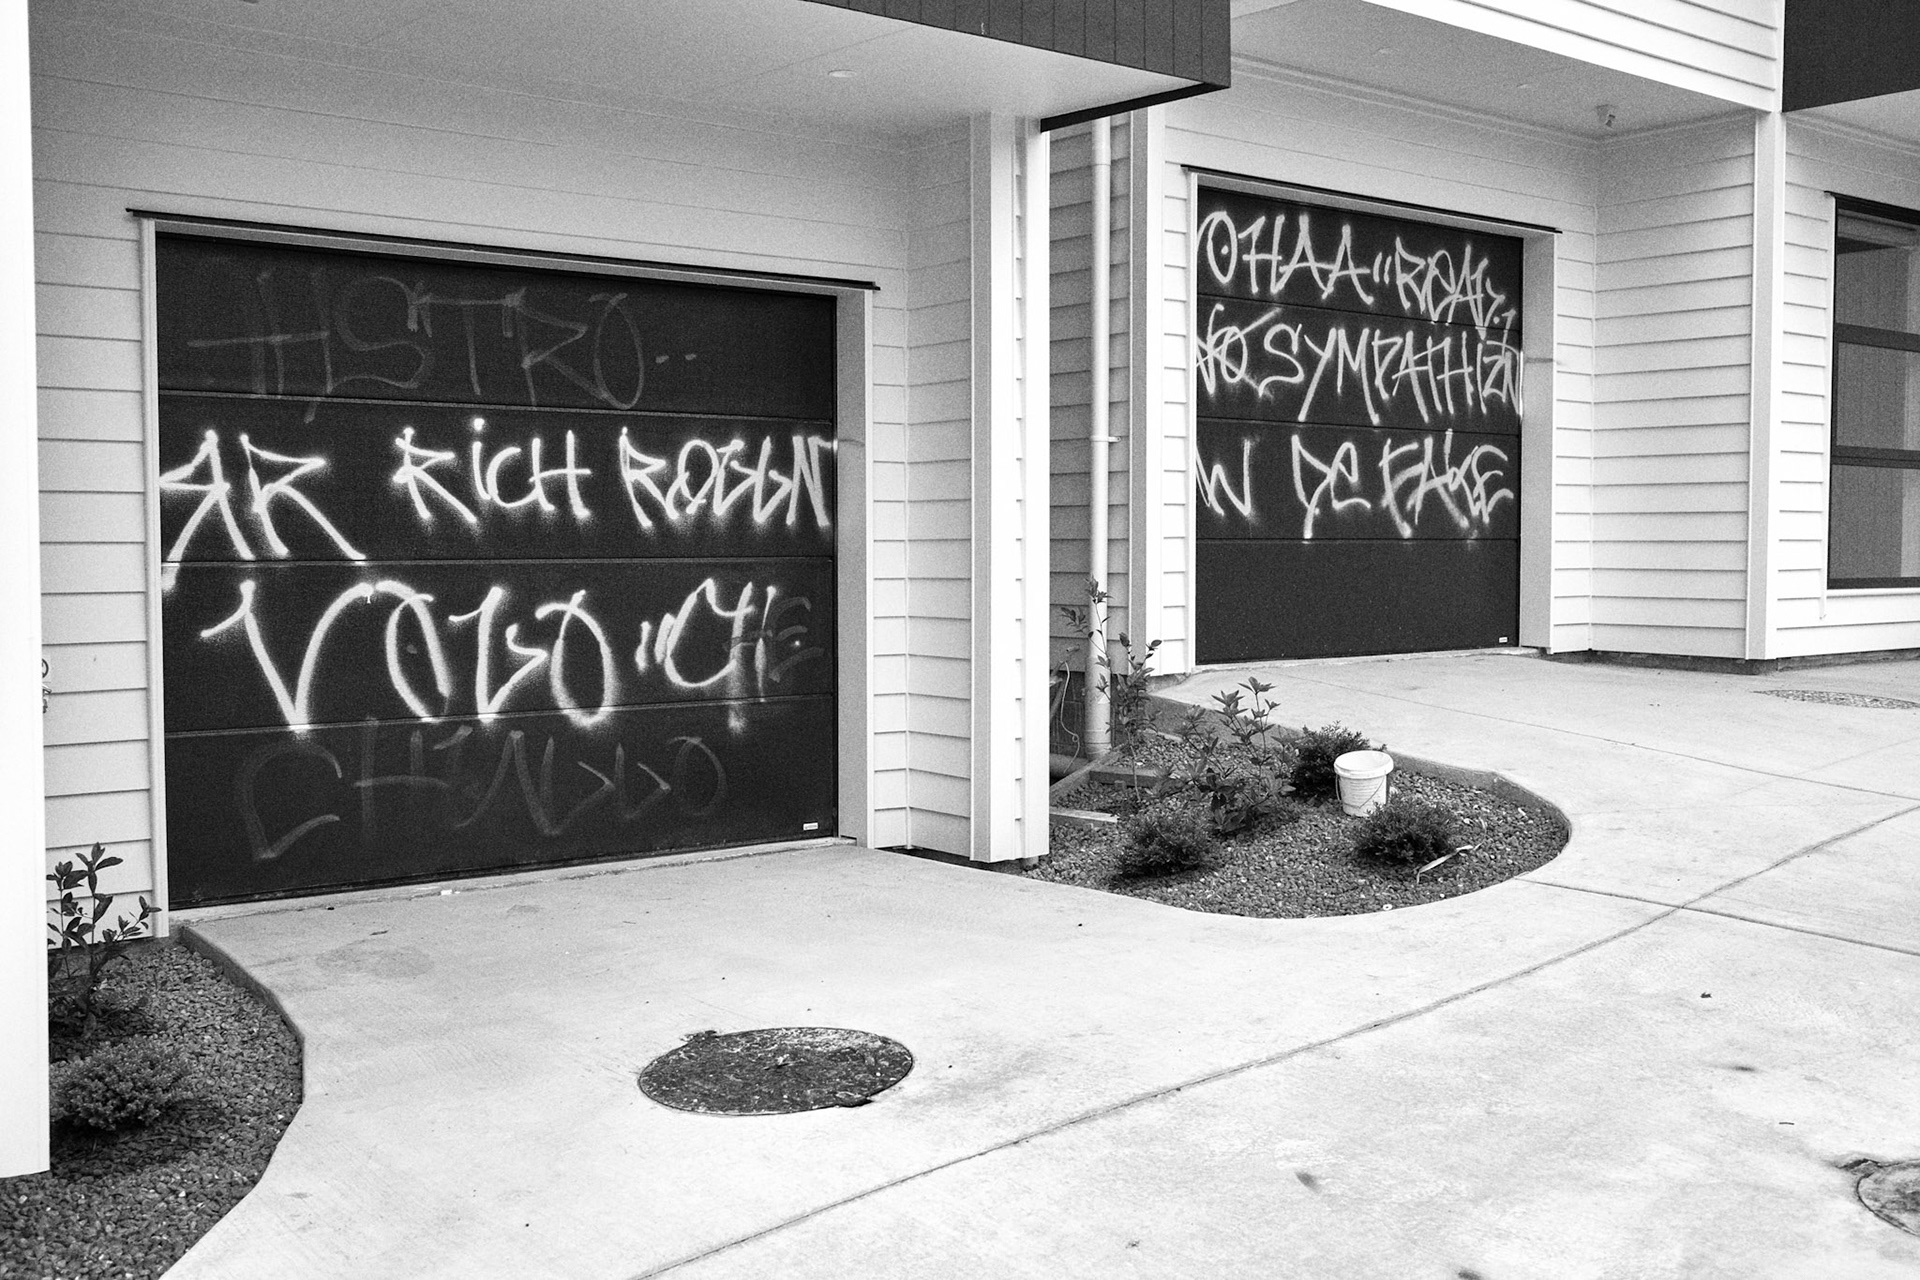 ASTRO..
RICH ROLLN
VOLO "CHE
CHINLLO
OHAA "REAL
NO SYMPATHIZN
W DE FAKE